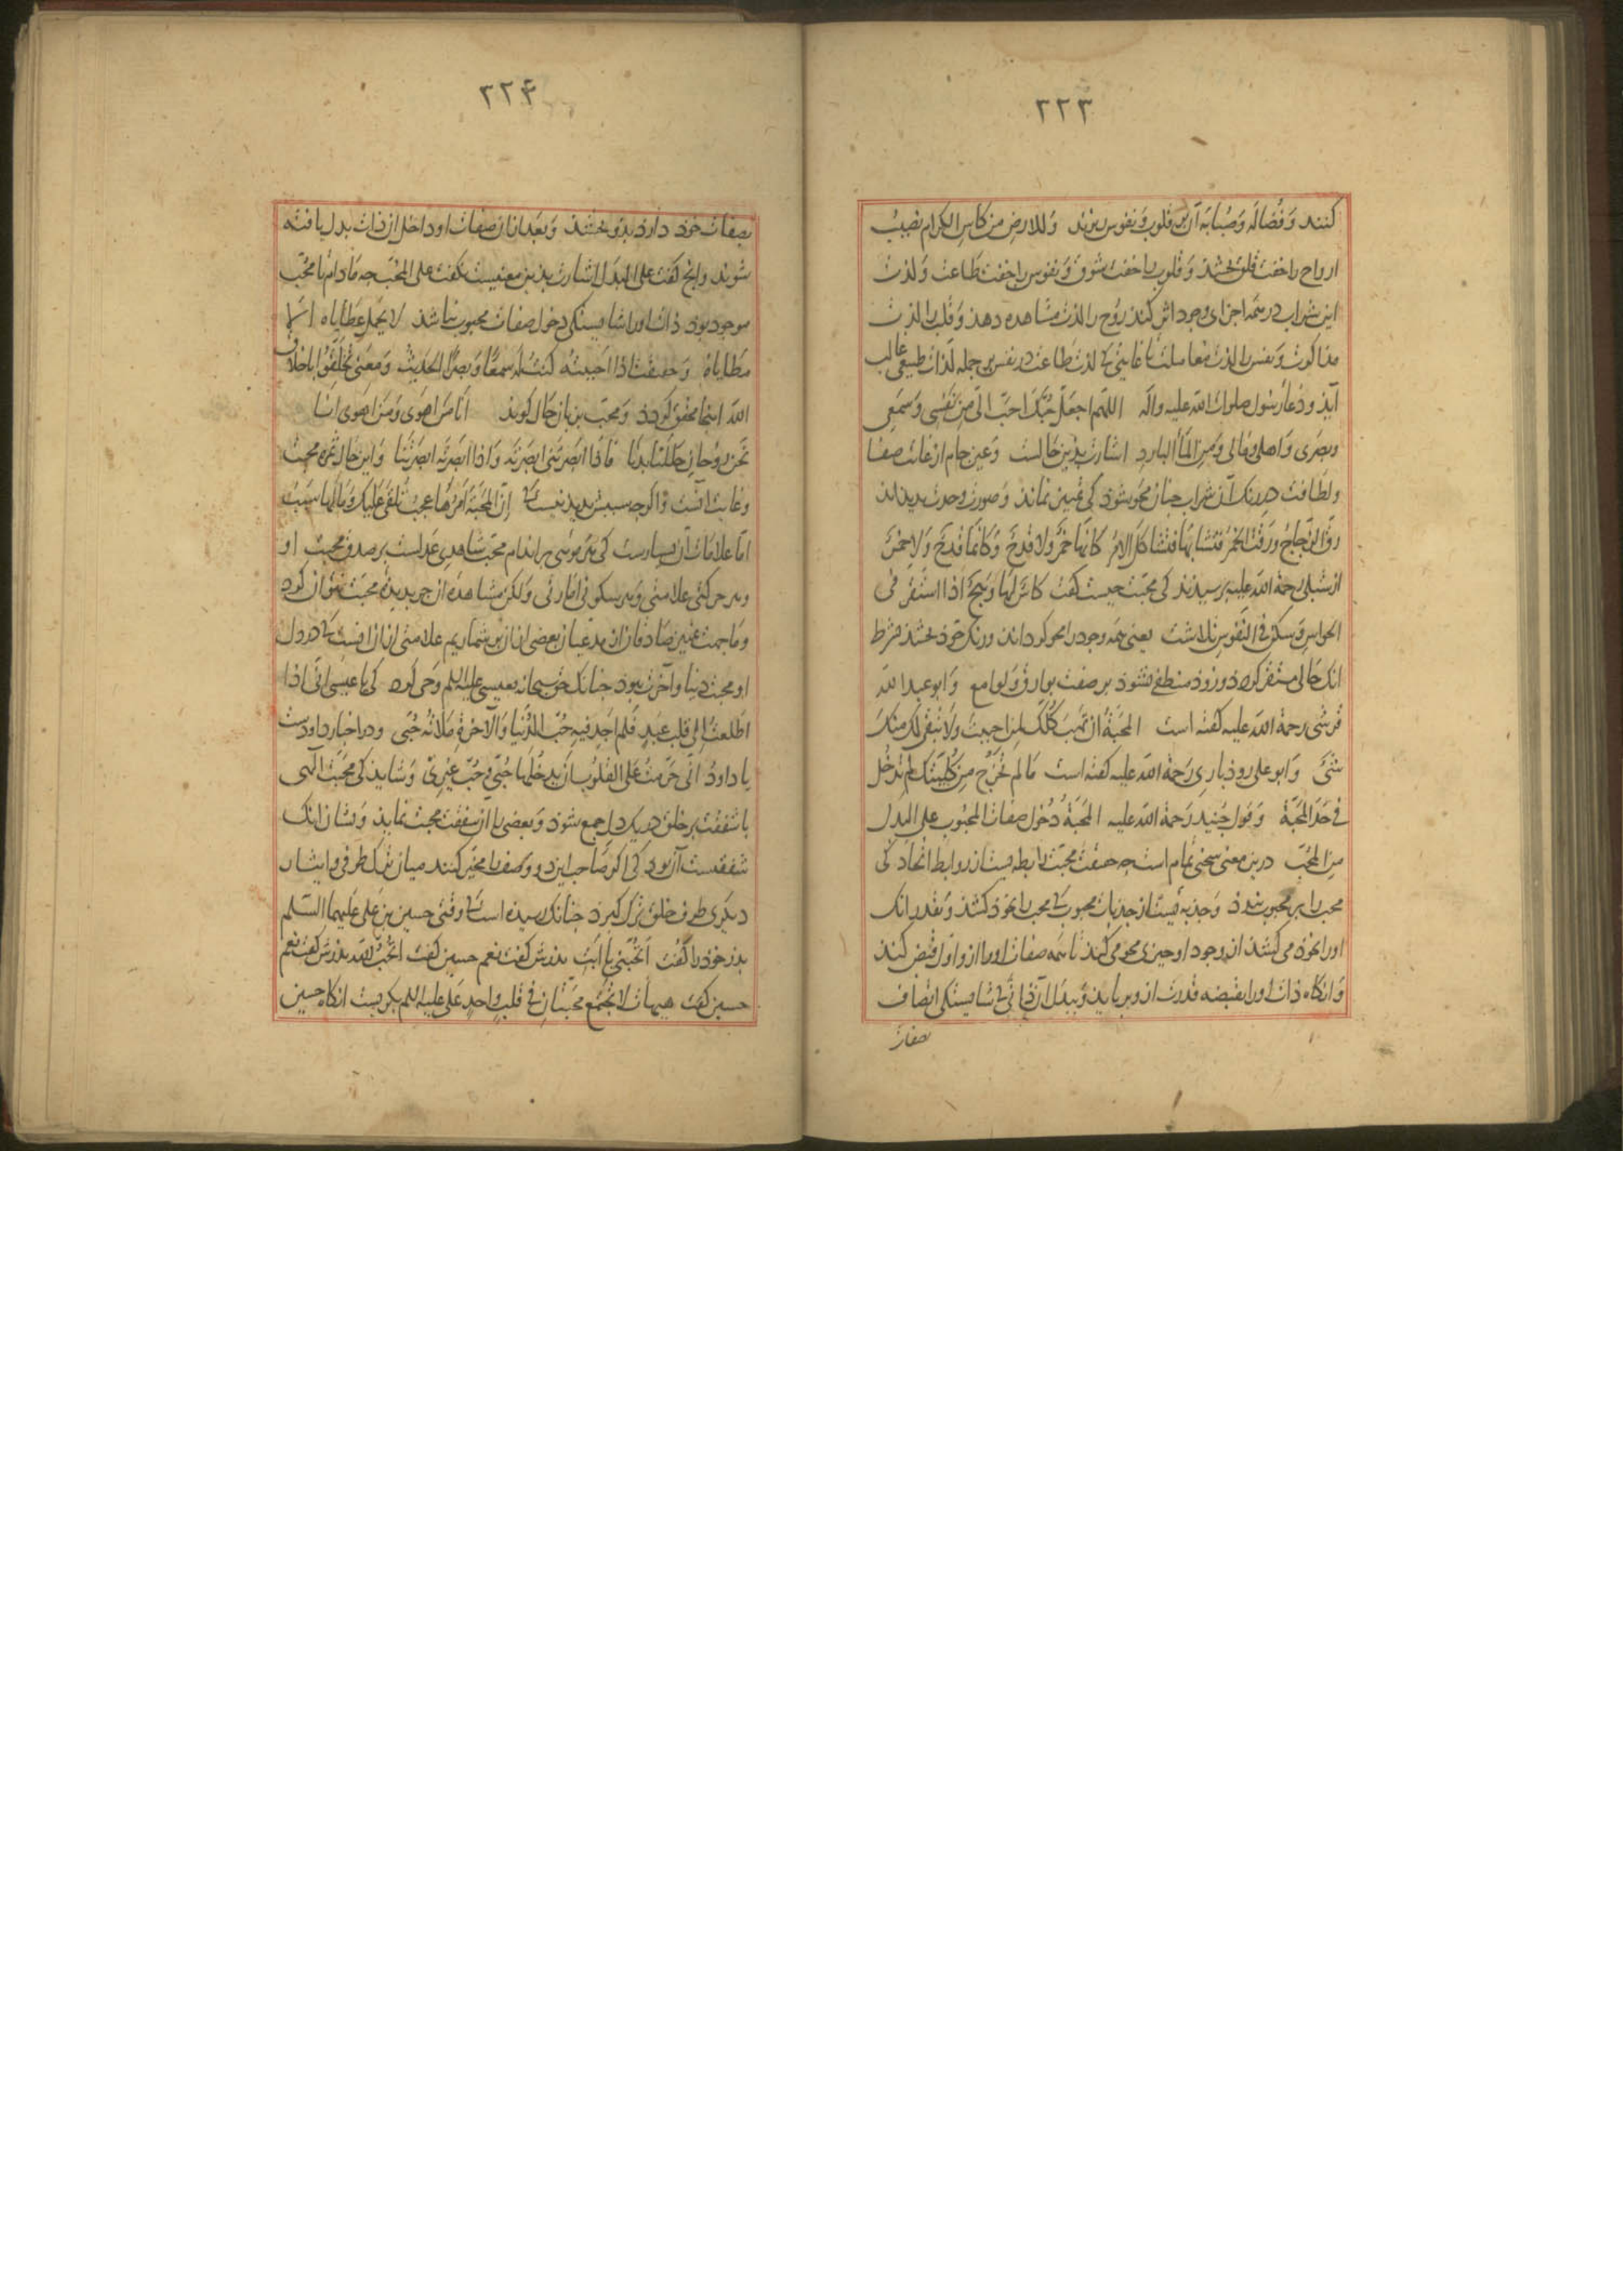 ۲۲۳
کنند و فضاله و صبابه آن بر قلوب و نفوس ریزند وللارض من کاس الکرام نصیب
ارواح را خفت قلق بخشد و قلوب را خفت شوق و نفوس را خفت طاعت و لذت
این شراب در همه اجزای وجود اثر کند روح را لذت مشاهده دهد و قلب را لذت
مذاکرت و نفس را لذت معاملت تا غایتی کی لذت طاعت در نفس بر جمله لذات طبیعی غالب
آید و دعاء رسول صلوات الله علیه وآله اللهم اجعل حبک احب الی من نفسی و سمعی
و بصری و اهلی و مالی و من الماء البارد اشارت بدین حالست و عین جام از غایت صفا
و لطافت در رنگ آن شراب چنان محو شود کی تمییز نماند و صورت وحدت پدید آید
رق الزجاج ورقت الخمر فتشابها فتشاکل الامر کانها خمر ولا قدح وکانما قدح ولا خمر
از شبلی رحمة الله علیه پرسیدند کی محبت چیست گفت کاس لها وهج اذا استقر فی
الحواس وسکن فی النفوس تلاشت یعنی همه وجود را محو گرداند و رنگ خود بخشد بشرط
انک حالی مستقر گردد و زود منطفی نشود بر صفت بوارق و لوامع و ابو عبد الله
قرشی رحمة الله علیه گفته است المحبة ان تهب کلک لمن احببت ولا تبقی لک منک
شیئ و ابو علی رودباری رحمة الله علیه گفته است ما لم تخرج من کلیتک لم تدخل
فی حد المحبة و قول جنید رحمة الله علیه المحبة دخول صفات المحبوب علی البدل
من المحب درین معنی سخنی تمام است چه صفت محبت رابطه یست از روابط اتحاد کی
محب را بر محبوب بندد و جذبه یست از جذبات محبوب کی محب را بخود کشد و بقدر انک
او را بخود می کشد از وجود او چیزی محو می کند تا همه صفات او را از او اول قبض کند
و آنگاه ذات او را بقبضه قدرت از و برباید و ببدل آن ذاتی کی شایستگی اتصاف
صفات
۲۲۴
بصفات خود دارد بدو بخشد و بعد از آن صفات او داخل آن ذات بدل یافته
شوند و انج گفت علی البدل اشارت بدین معنیست نگفت علی المحب چه مادام تا محب
موجود بود ذات او را شایستگی دخول صفات محبوب نباشد لا یحمل عطایاه الا
مطایاه و حقیقت اذا احببته کنت له سمعا و بصرا الحدیث و معنی تخلقوا باخلاق
الله اینجا محقق گردد و محب بزبان حال گوید انا من اهوی و من اهوی انا
نحن روحان حللنا بدنا فاذا ابصرتنی ابصرته واذا ابصرته ابصرتنا و این حال ثمره محبت
و غایت آنست و اگر چه سببش پدید نیست کی ان المحبة امرها عجب تلقی علیک وما لها سبب
اما علامات آن بسیارست کی هر مویی بر اندام محب شاهدی عدلست بر صدق محبت او
و هر حرکتی علامتی و هر سکونی امارتی ولکن مشاهده آن جز بدیده محبت نتوان کرد
و ما جهت تمییز صادقان از مدعیان بعضی از آن بر شماریم علامتی از آن آنست کی در دل
او محبت دنیا و آخرت نبود چنانک حق سبحانه بعیسی علیه السلم وحی کرد کی یا عیسی انی اذا
اطلعت الی قلب عبد فلم اجد فیه حب الدنیا والآخرة ملاته حبی و در اخبار داودست
یا داود انی حرمت علی القلوب ان یدخلها حبی و حب غیری و شاید کی محبت الهی
با شفقت بر خلق در یک دل جمع شود و بعضی را آن شفقت محبت نماید و نشان انک
شفقتست آن بود کی اگر صاحب این دو وصف را مخیر کنند میان ترک طرفی و ایثار
دیگری طرف خلق ترک گیرد چنانک رسیده است کی وقتی حسین بن علی علیهما السلم
پدر خود را گفت اتحبنی یا ابت پدرش گفت نعم حسین گفت اتحب الله پدرش گفت نعم
حسین گفت هیهات لا تجتمع محبتان فی قلب واحد علی علیه السلم بگریست آنگاه حسین